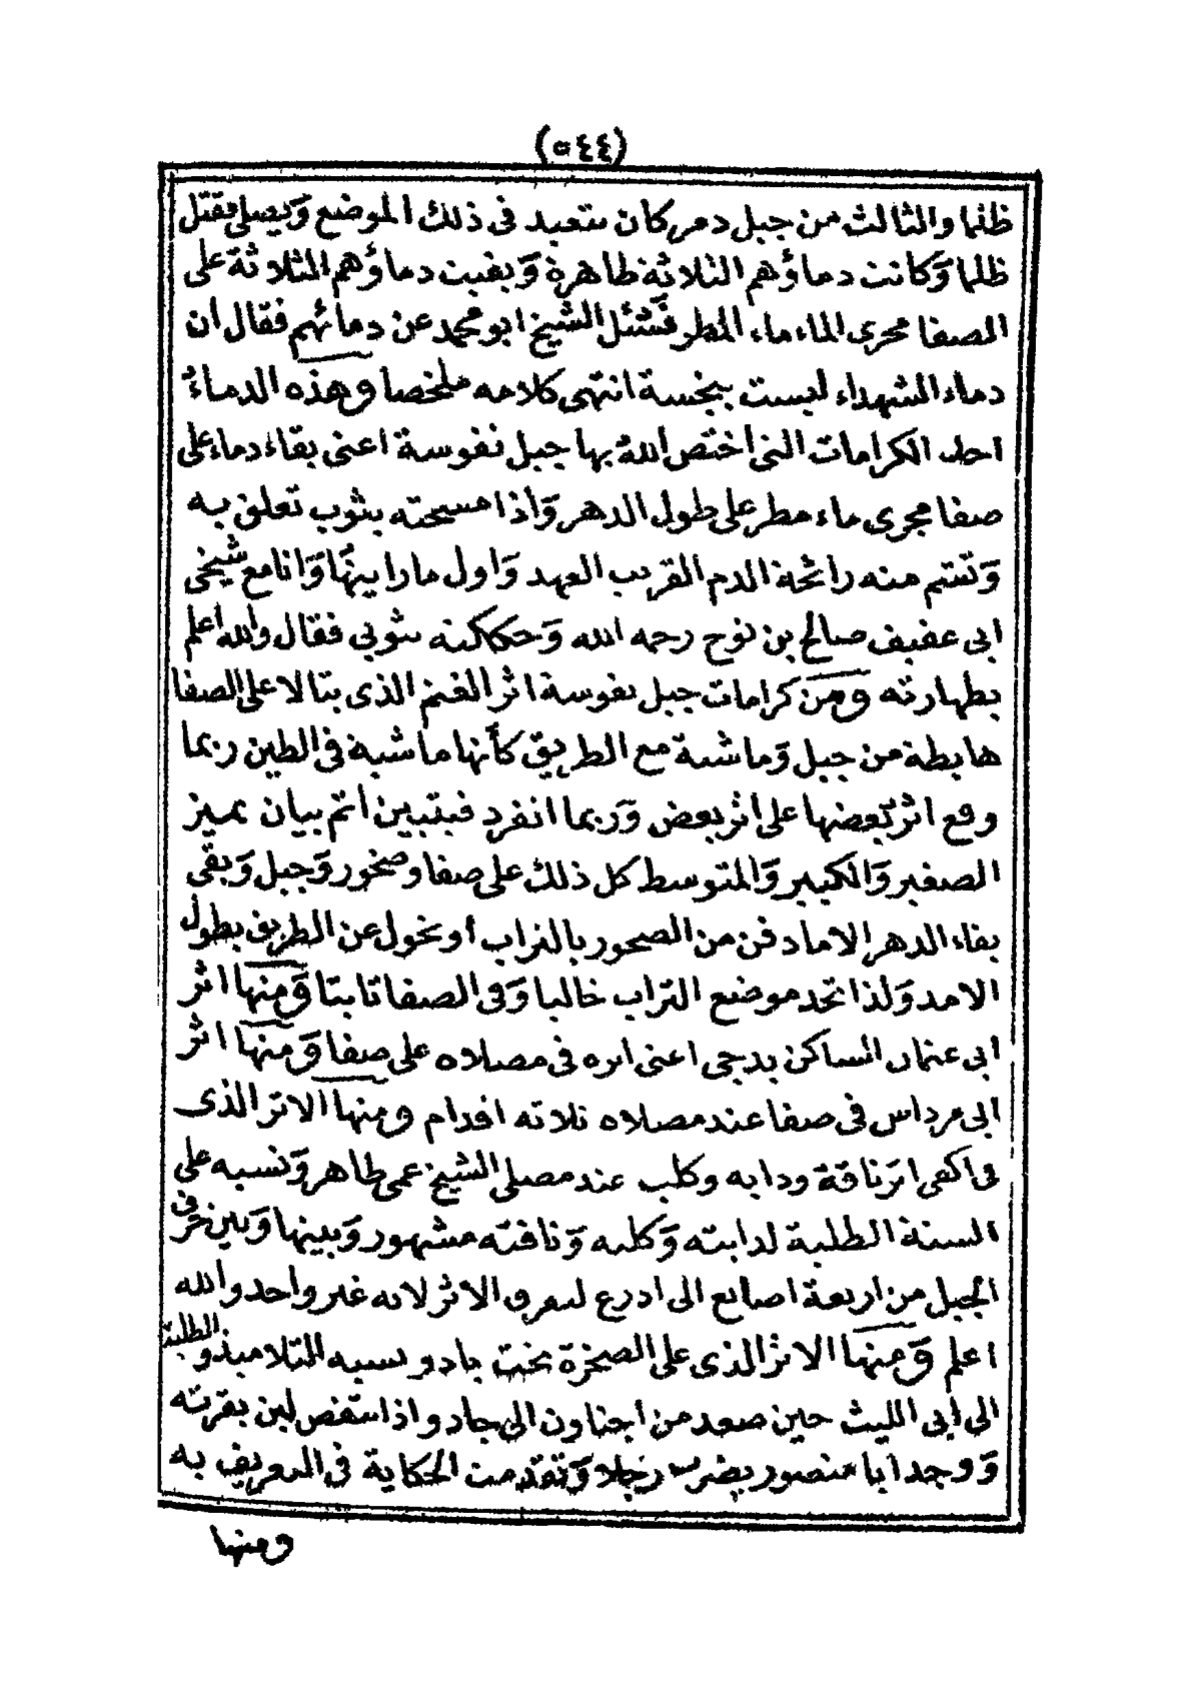 (٥٤٤)
ظلما والثالث من جبل دمر كان يتعبد في ذلك الموضع وَيصلي فقتل
ظلما وَكانت دماؤهم الثلاثة ظاهرة وَبقيت دماؤهم الثلاثة على
الصفا مجرى الماء ماء المطر فَسُئل الشيخ ابو محمد عن دمائهم فقال ان
دماء الشهداء ليست بنجسة انتهى كلامه ملخصا وهذه الدماءُ
احد الكرامات التى اختص اللهُ بها جبل نفوسة اعنى بقاء دماء على
صفا مجرى ماء مطر على طول الدهر وَاذا مسحته بثوب تعلق به
وَتشم منه رائحة الدم القريب العهد وَاول ما رايتُها وَانا مع شيخى
ابى عفيف صالح بن نوح رحمه الله وَحككته بثوبى فقال والله اعلم
بطهارته ومن كرامات جبل نفوسة اثر الغنم الذى بتالا على الصفا
هابطة من جبل وَماشية مع الطريق كأنها ماشية فى الطين ربما
وقع اثر بَعضها على اثر بعض وَربما انفرد فيتبين اتم بيان يميز
الصغير وَالكبير وَالمتوسط كل ذلك على صفا وصخور وَجبل وَبقى
بقاء الدهر الاما دفن من الصخور بالتراب أو تحول عن الطريق بطول
الامد وَلذا تجد موضع التراب خاليا وَفى الصفا ثابتا وَمنها اثر
ابى عثمان الساكن بدجى اعنى اثره فى مصلاه على صفا وَمنها اثر
ابى مرداس فى صفا عند مصلاه ثلاثه اقدام ومنها الاثر الذى
فى اكفى اثر ناقة ودابه وكلب عند مصلى الشيخ عمى طاهر وَنسبه على
السنة الطلبة لدابته وَكلبه وَناقته مشهور وَبينها وَبين حرفى
الجبل من اربعة اصابع الى ادرع ليعرف الاثر لانه غير واحد والله
اعلم وَمنها الاثر الذى على الصخرة تحت جادو نسبه التلاميذ والطلبة
الى ابى الليث حين صعد من اجناون الى جادو اذا ستفض لبن بقرته
وَوجد ابا منصور يضرب رجلا وَتقدمت الحكاية فى التعريف به
ومنها